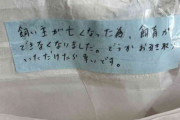 飼い主が亡くなった為、飼育が
できなくなりました。どうかお引き取り
いただけたら幸いです。